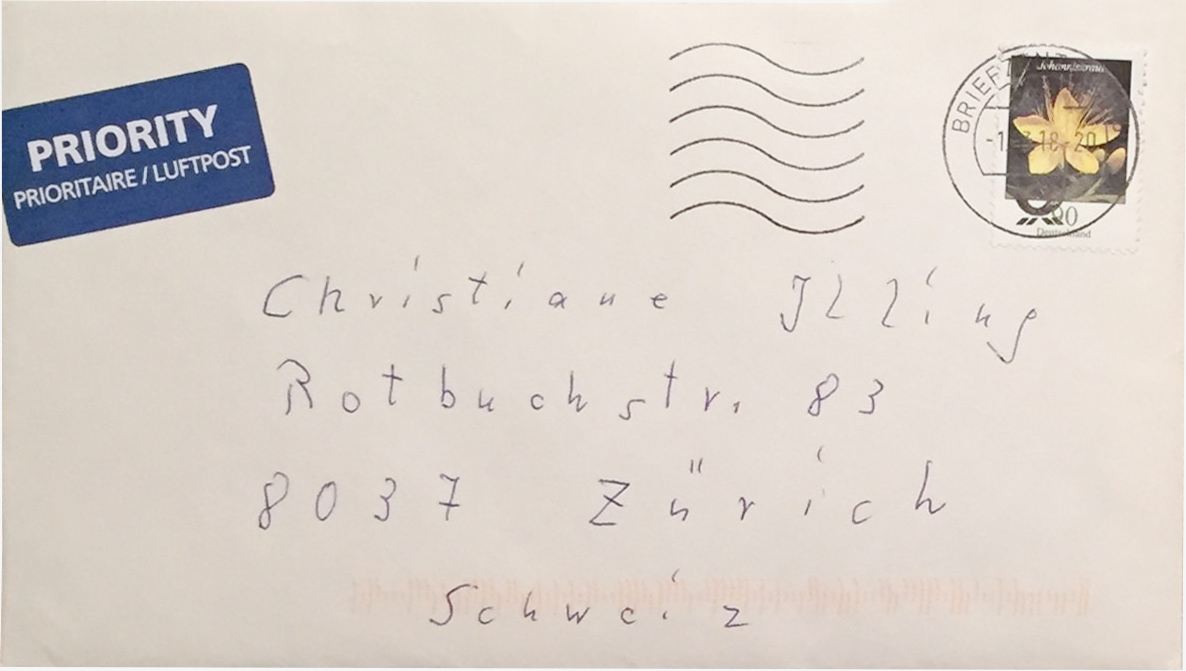 PRIORITY
PRIORITAIRE / LUFTPOST
Johanniskraut
90
Deutschland
Christiane Illing
Rotbuchstr. 83
8037 Zürich
Schweiz